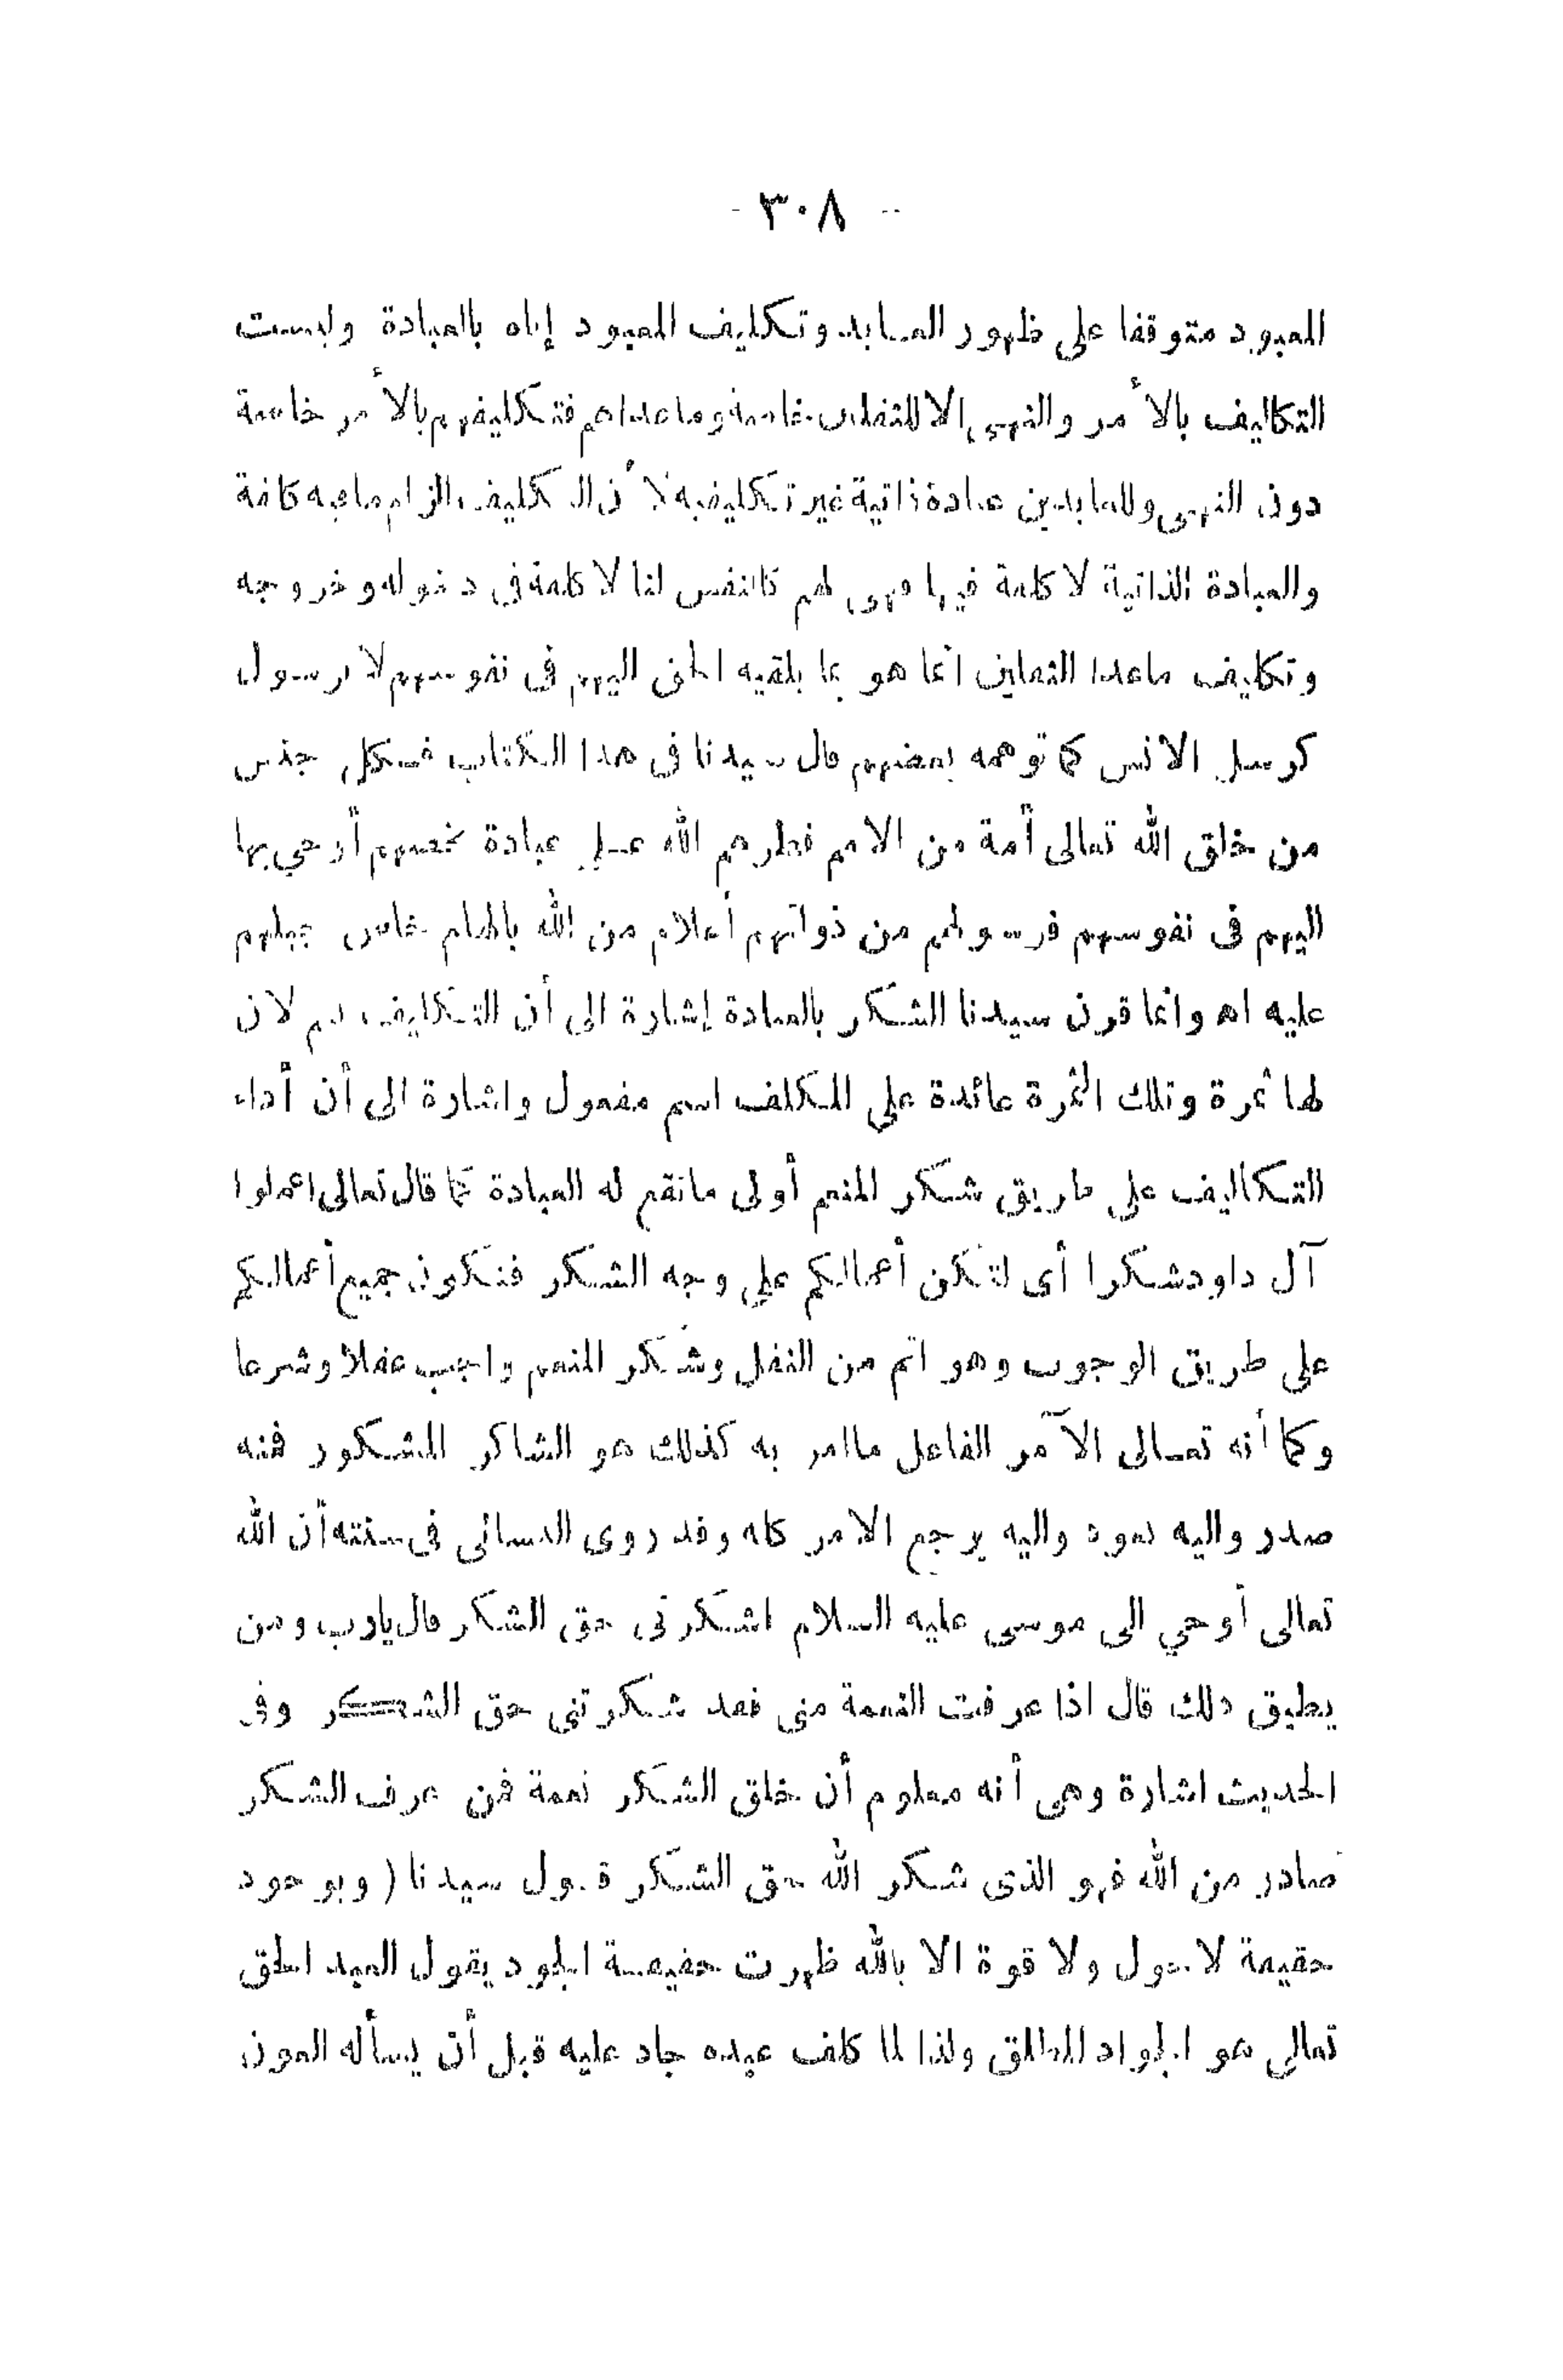 - ٣٠٨ -
المعبود متوقفا على ظهور العابد وتكليف المعبود إياه بالعبادة وليست
التكاليف بالأمر والنهى الا للثقلين خاصة وما عداهم فتكليفهم بالأمر خاصة
دون النهى وللعابدين عبادة ذاتية غير تكليفيه لأن التكليف الزام مافيه كلفة
والعبادة الذاتية لا كلمة فيها فهى لهم كالنفس لنا لا كلمة فى دخوله وخروجه
وتكليف ماعدا الثقلين انما هو بما يلقيه الحق اليهم فى نفوسهم لا برسول
كرسل الانس كما توهمه بعضهم قال سيدنا فى هذا الكتاب فكل جنس
من خلق الله تعالى أمة من الامم فطرهم الله على عبادة تخصهم أوحي بها
اليهم فى نفوسهم فرسولهم من ذواتهم أعلام من الله بالهام خاص جبلهم
عليه اه وانما قرن سيدنا الشكر بالعبادة إشارة الى أن التكاليف نعم لان
لها ثمرة وتلك الثمرة عائدة على المكلف اسم مفعول واشارة الى أن أداء
التكاليف على طريق شكر المنعم أولى ماتقع له العبادة كما قال تعالى اعملوا
آل داود شكرا أى لتكن أعمالكم على وجه الشكر فتكون جميع أعمالكم
على طريق الوجوب وهو اتم من النفل وشكر المنعم واجب عقلا وشرعا
وكما أنه تعالى الآمر الفاعل ماامر به كذلك هو الشاكر المشكور فمنه
صدر واليه يعود واليه يرجع الامر كله وقد روى النسائى فى سننه أن الله
تعالى أوحي الى موسى عليه السلام اشكرنى حق الشكر قال يارب ومن
يطيق ذلك قال اذا عرفت النعمة منى فقد شكرتنى حق الشكر وفى
الحديث اشارة وهى أنه معلوم أن خلق الشكر نعمة فمن عرف الشكر
صادر من الله فهو الذى شكر الله حق الشكر قول سيدنا ( وبوجود
حقيقة لا حول ولا قوة الا بالله ظهرت حقيقة الجود يقول العبد الحق
تعالى هو الجواد المطلق ولذا لما كلف عبده جاد عليه قبل أن يسأله العون